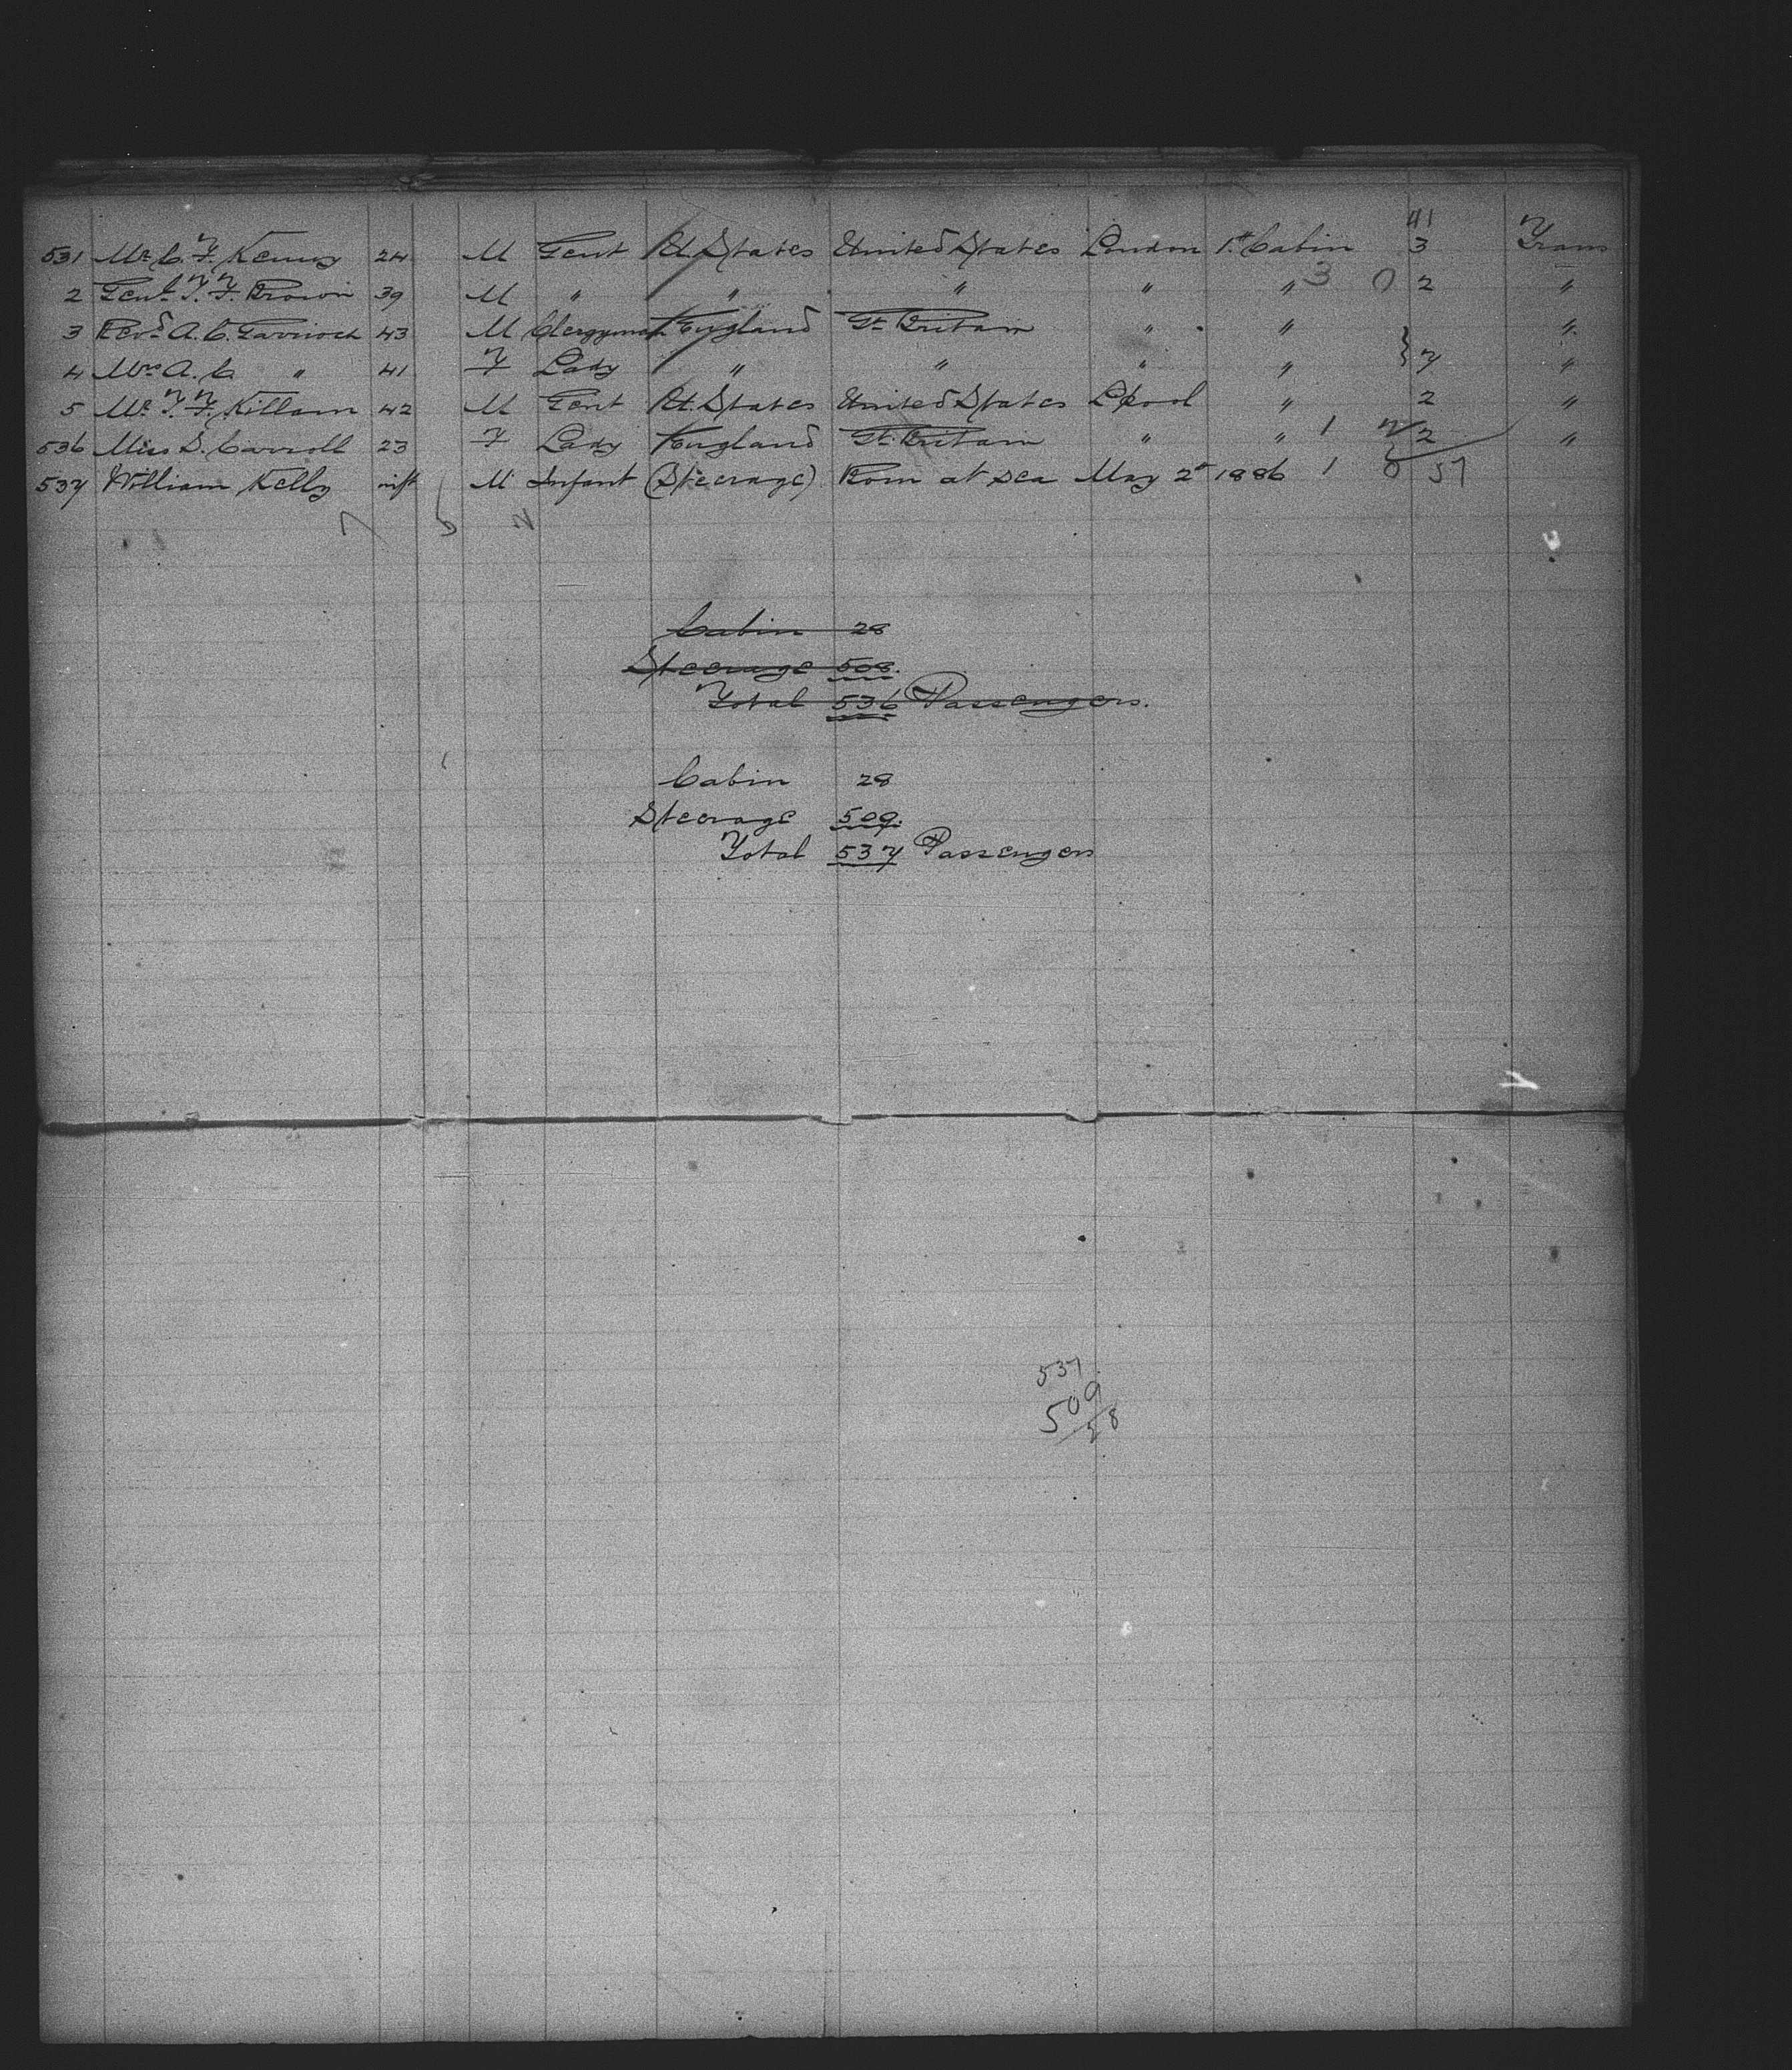 41
531 Mr. C. F. Kenny 24 M Gent U. States United States London 1st Cabin 3 Trans
2 Genl. T. F. Brown 39 M " " " " " 3 0 2 "
3 Revd. A. C. Garrioch 43 M Clergyman England Gt. Britain " " "
4 Mrs A. C. " 41 F Lady " " " " } 7 "
5 Mr. T. F. Killam 42 M Gent U. States United States Lpool " 2 "
536 Miss S. Carroll 23 F Lady England Gt. Britain " " 1 2 "
537 William Kelly inft M Infant (Steerage) Born at sea May 2d 1886 1 0 57
Cabin 28
Steerage 508.
Total 536 Passengers.
Cabin 28
Steerage 509.
Total 537 Passengers
537
509
28